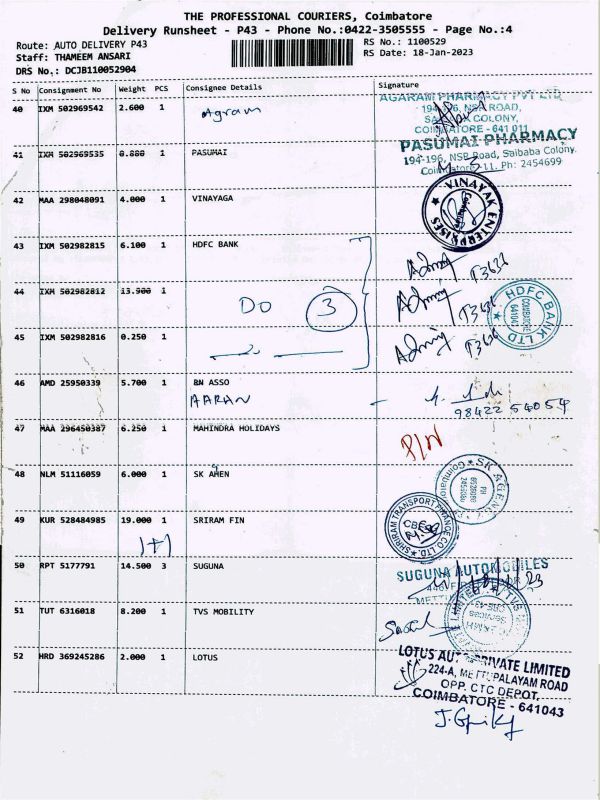 THE PROFESSIONAL COURIERS, Coimbatore
Delivery Runsheet - P43 - Phone No.:0422-3505555 - Page No.:4
Route: AUTO DELIVERY P43
RS No.: 1100529
Staff: THAMEEM ANSARI
RS Date: 18-Jan-2023
DRS No.: DCJB110052904
S No Consignment No Weight PCS Consignee Details Signature
40 IXM 502969542 2.600 1 Agram
AGARAM PHARMACY PVT LTD
194-196, NSB ROAD,
COLONY,
COIMBATORE - 641 011
41 IXM 502969535 0.880 1 PASUMAI
PASUMAI PHARMACY
194-196, NSB Road, Saibaba Colony,
Coimbatore-11. Ph: 2454699
42 MAA 298048091 4.000 1 VINAYAGA
VINAYAK ENTERPRISES
43 IXM 502982815 6.100 1 HDFC BANK
44 IXM 502982812 13.900 1
DO 3
HDFC BANK LTD
COIMBATORE
641043
45 IXM 502982816 0.250 1
46 AMD 25950339 5.700 1 BN ASSO
AARAN
98422 54054
47 MAA 296450387 6.250 1 MAHINDRA HOLIDAYS
48 NLM 51116059 6.000 1 SK AHEN
49 KUR 528484985 19.000 1 SRIRAM FIN
1+1
50 RPT 5177791 14.500 3 SUGUNA
SUGUNA AUTOMOBILES
51 TUT 6316018 8.200 1 TVS MOBILITY
52 HRD 369245286 2.000 1 LOTUS
LOTUS AUTO PRIVATE LIMITED
224-A, METTUPALAYAM ROAD
OPP. CTC DEPOT,
COIMBATORE - 641043